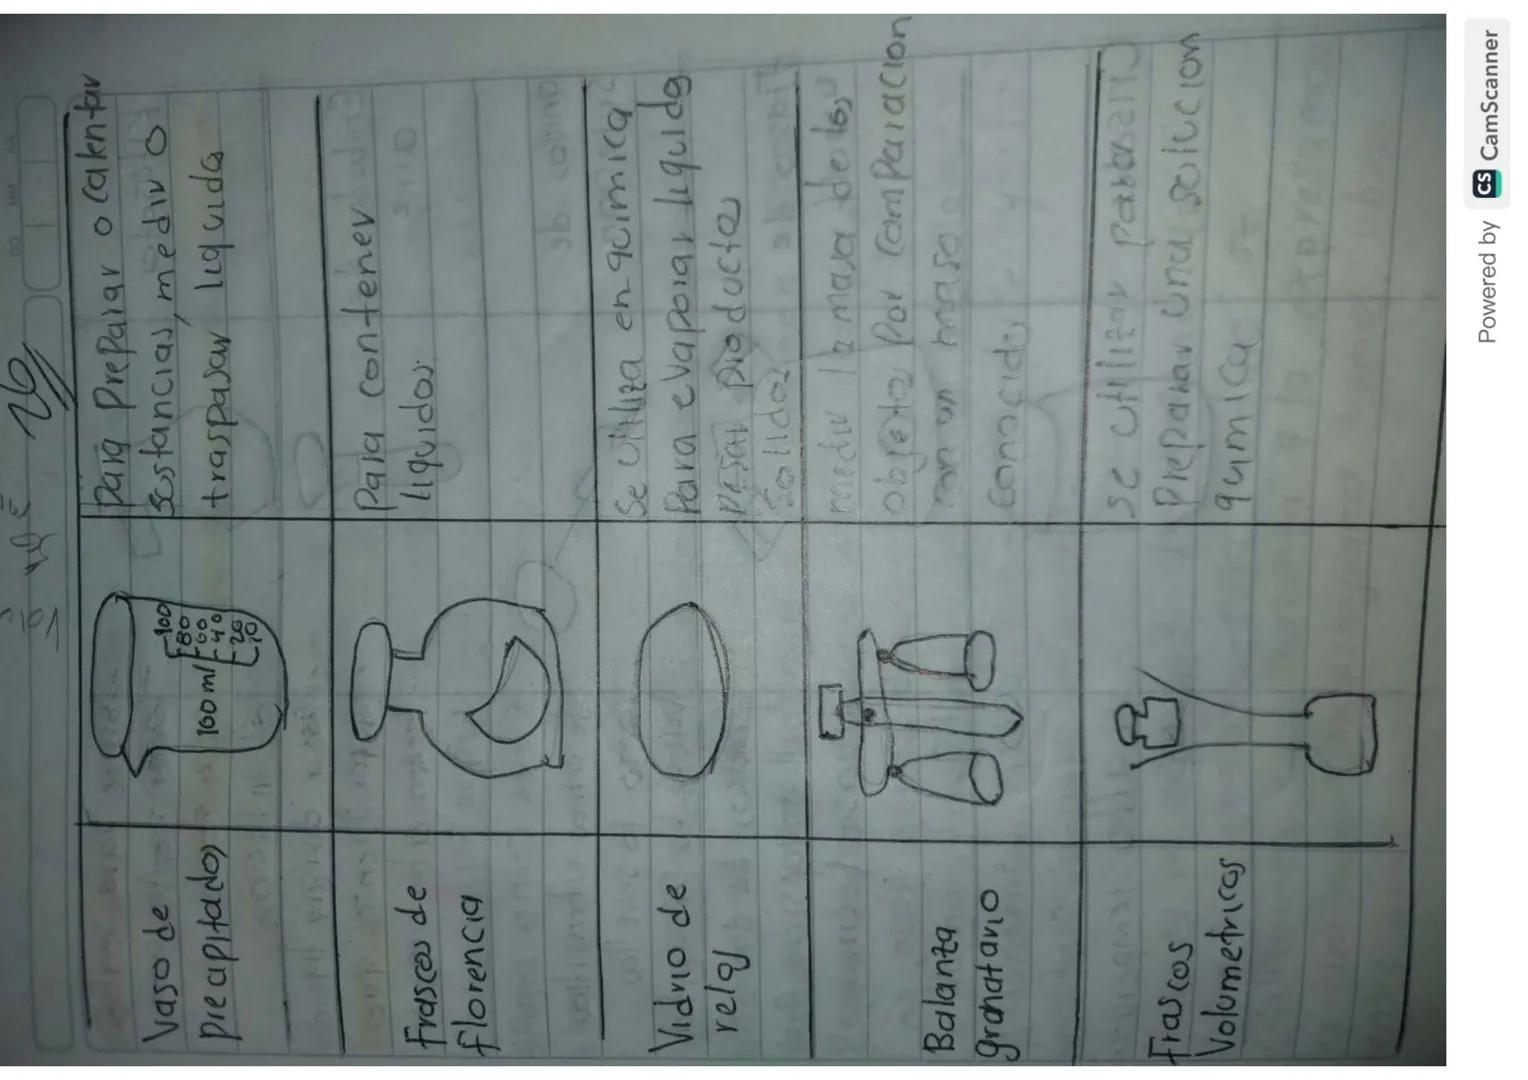 26
Vaso de
precapitado,
100 ml
100
80
60
40
20
10
para preparar o calentar
sustancias, medir o
traspasar liquidos
Frascos de
florencia
Para contener
liquidos.
Vidrio de
reloj
Se utiliza en quimica
Para evaporar liquidos
pesar productos
solidos
Balanza
granatario
medir la masa de los
objetos por comparacion
con un masa
conocida
Frascos
Volumetricos
se utilizar para
Preparar una solucion
quimica
Powered by CS CamScanner